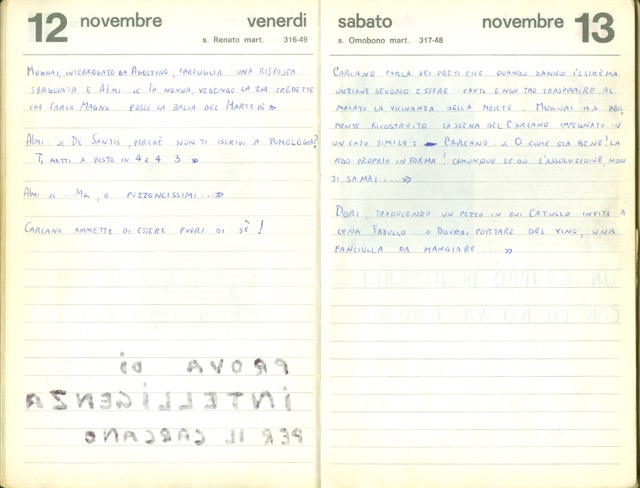 12 novembre venerdi
s. Renato mart. 316-49
MUGNAI, INTERROGATO DA AGOSTINO, FARFUGLIA UNA RISPOSTA
SBAGLIATA E ALMI « LA NONNA, VEDENDO LA ZIA CREDETTE
CHE CARLO MAGNO FOSSE LA BALIA DEL MARTEDÌ »
ALMI: « DE SANTIS, PERCHÈ NON TI ISCRIVI A POMOLOGIA?
TI METTI A POSTO IN 4 E 4 3 »
ALMI: « ... MA, O PUZZONCISSIMI ... »
CARCANO AMMETTE DI ESSERE FUORI DI SÈ !
PROVA DI
INTELLIGENZA
PER IL CARCANO
sabato novembre 13
s. Omobono mart. 317-48
CARCANO PARLA DEI PRETI CHE QUANDO DANNO L'ESTREMA
UNZIONE DEVONO ESSERE CAUTI E NON FAR TRASPARIRE AL
MALATO LA VICINANZA DELLA MORTE. MUGNAI HA ABIL
MENTE RICOSTRUITO LA SCENA DEL CARCANO IMPEGNATO IN
UN CASO SIMILE: CARCANO: « O COME STA BENE! LA
VEDO PROPRIO IN FORMA! COMUNQUE LE DÒ L'ASSOLUZIONE, NON
SI SA MAI ... »
DORI, TRADUCENDO UN PEZZO IN CUI CATULLO INVITA A
CENA FABULLO: DOVRAI PORTARE DEL VINO, UNA
FANCIULLA DA MANGIARE ... »
UN GRUPPO DI
CON LA NUOVA